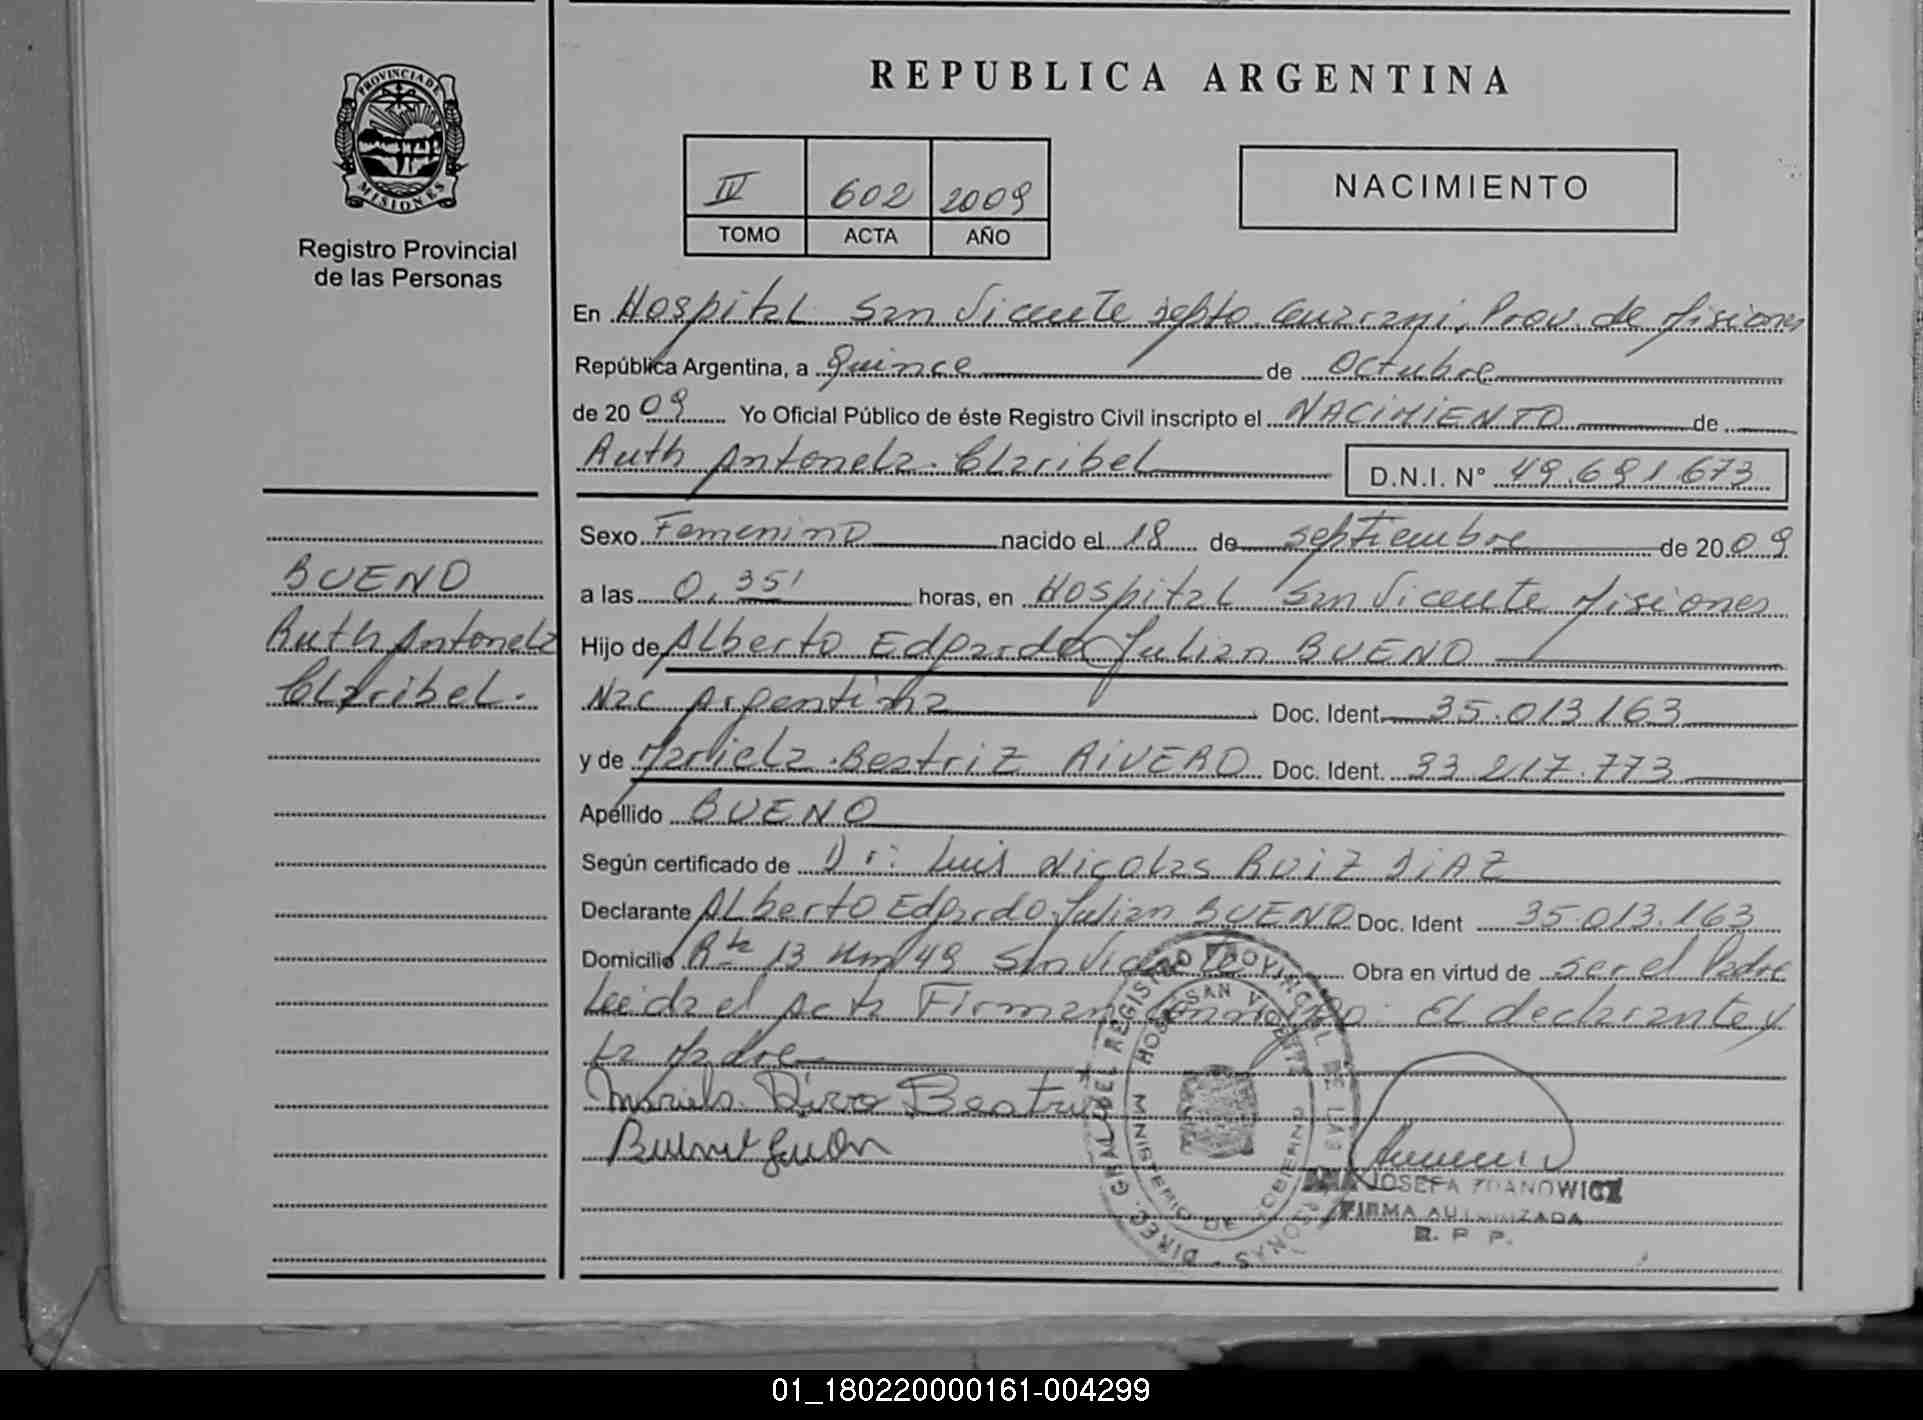 REPUBLICA ARGENTINA
PROVINCIA DE
MISIONES
Registro Provincial
de las Personas
IV 602 2009
TOMO ACTA AÑO
NACIMIENTO
En Hospital San Vicente depto. Guarani, Prov. de Misiones
República Argentina, a Quince de Octubre
de 2009 Yo Oficial Público de éste Registro Civil inscripto el NACIMIENTO de
Ruth Antonela Claribel D.N.I. N° 49.691.673
Sexo Femenino nacido el 18 de septiembre de 2009
a las 0,35' horas, en Hospital San Vicente Misiones
Hijo de Alberto Edgardo Julian BUENO
Nac Argentina Doc. Ident. 35.013.163
y de Mariela Beatriz RIVERO Doc. Ident. 33.217.773
Apellido BUENO
Según certificado de Dr: Luis Nicolas RUIZ DIAZ
Declarante Alberto Edgardo Julian BUENO Doc. Ident 35.013.163
Domicilio Rta 13 Km 49 San Vicente Obra en virtud de ser el Padre
Leida el Acta Firman conmigo: El declarante y
La Madre
BUENO
Ruth Antonela
Claribel.
Beatriz
DIREC. GRAL. DEL REGISTRO PROVINCIAL DE LAS PERSONAS
HOSP. SAN VICENTE
MINISTERIO DE GOBIERNO
ANA JOSEFA ZDANOWICZ
FIRMA AUTORIZADA
R. P. P.
01_180220000161-004299